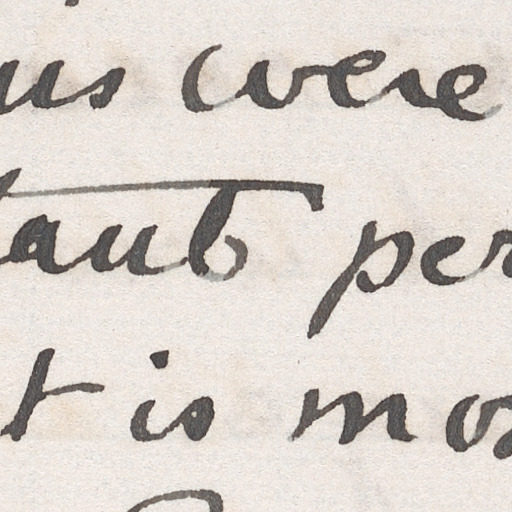 us were
tant per
t is mos